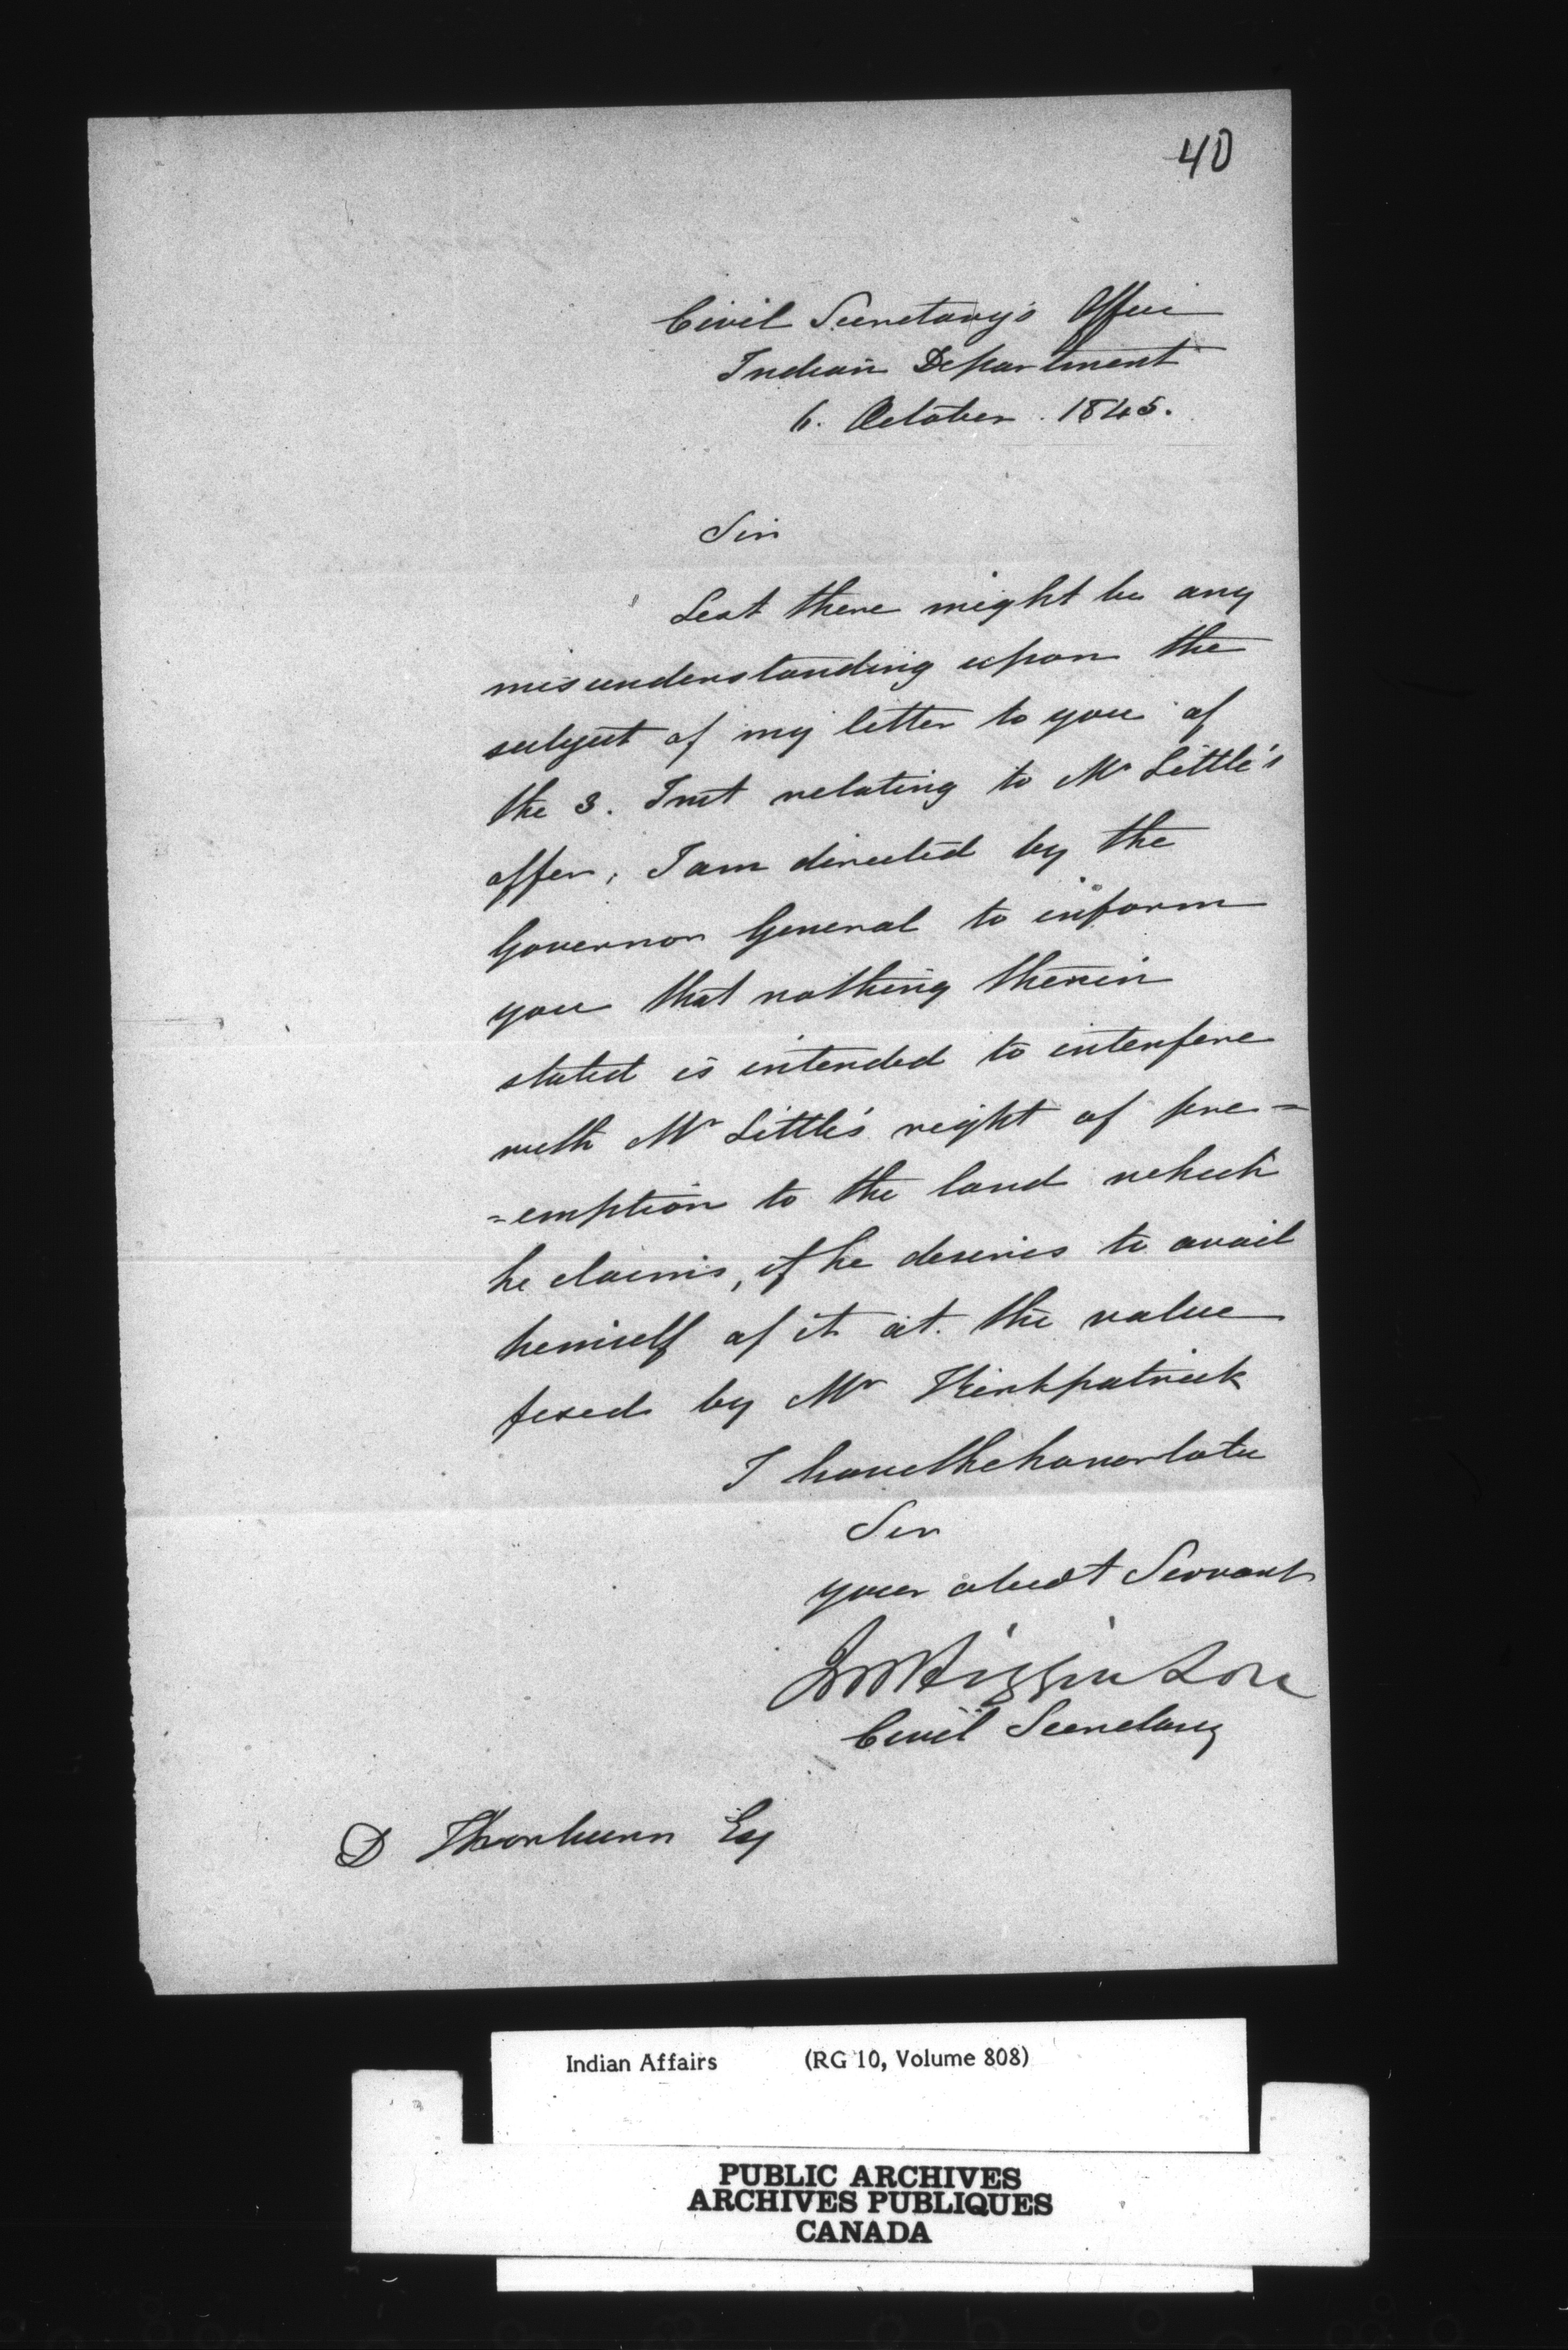 40
Civil Secretary's Office
Indian Department
6. October. 1845.
Sir
Lest there might be any
misunderstanding upon the
subject of my letter to you of
the 3. Inst relating to Mr Little's
offer, I am directed by the
Governor General to inform
you that nothing therein
stated is intended to interfere
with Mr Little's right of pre=
=emption to the land which
he claims, if he desires to avail
himself of it at the value
fixed by Mr Kirkpatrick
I have the honor to be
Sir
your obedt Servant
JMHigginson
Civil Secretary
D Thorburn Esq
Indian Affairs (RG 10, Volume 808)
PUBLIC ARCHIVES
ARCHIVES PUBLIQUES
CANADA